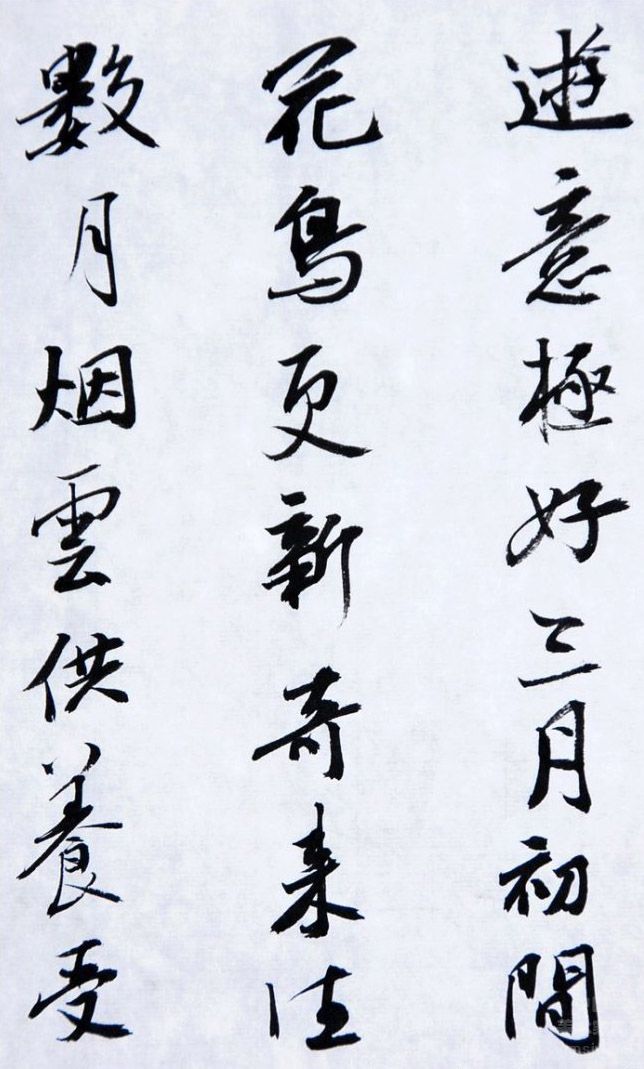 遊意極好三月初間
花鳥更新奇来往
數月烟雲供養受